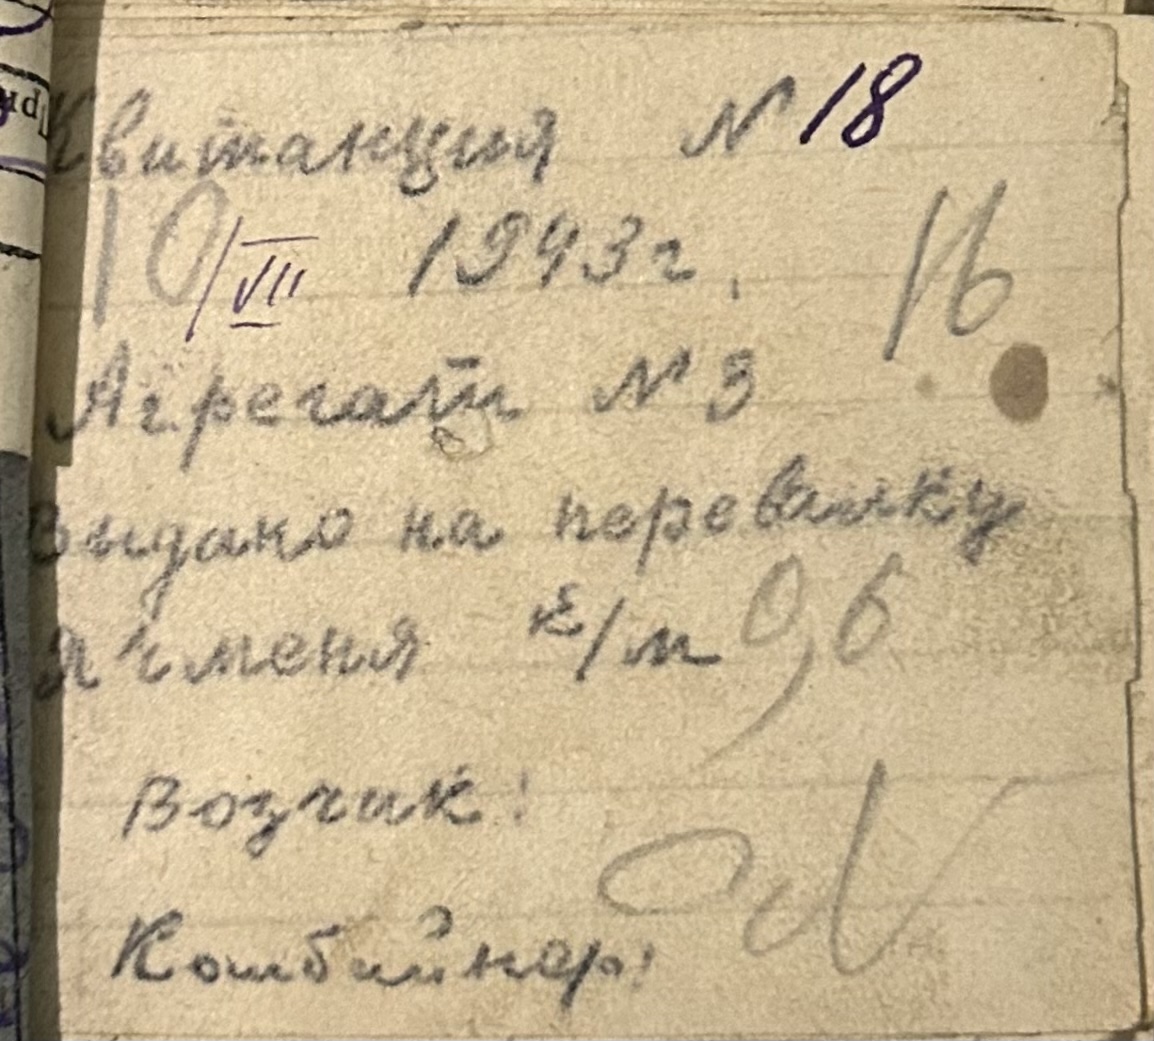 Квитанция N 18
10/VII 1943г. 16
Агрегат N 3
Выдано на перевалку
ячменя ц/м 0,6
Возчик:
Комбайнер: